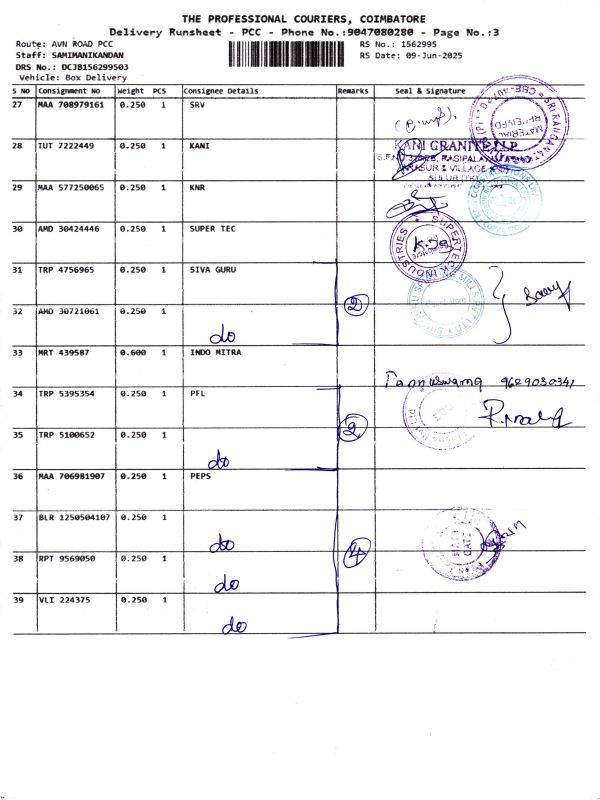 THE PROFESSIONAL COURIERS, COIMBATORE
Delivery Runsheet - PCC - Phone No.:9047080280 - Page No.:3
Route: AVN ROAD PCC
RS No.: 1562995
Staff: SAMIMANIKANDAN
RS Date: 09-Jun-2025
DRS No.: DCJB156299503
Vehicle: Box Delivery
S No Consignment No Weight PCS Consignee Details Remarks Seal & Signature
27 MAA 708979161 0.250 1 SRV
MATERIAL
28 TUT 7222449 0.250 1 KANI
KANI GRANITE LLP
29 MAA 577250065 0.250 1 KNR
SULUR (TK)
30 AMD 30424446 0.250 1 SUPER TEC
SUPERTECH INDUSTRIES
31 TRP 4756965 0.250 1 SIVA GURU
2
32 AMD 30721061 0.250 1
do
33 MRT 439587 0.600 1 INDO MITRA
9629030341
34 TRP 5395354 0.250 1 PFL
2
35 TRP 5100652 0.250 1
do
36 MAA 706981907 0.250 1 PEPS
37 BLR 1250504107 0.250 1
do
4
GATE
38 RPT 9569050 0.250 1
do
39 VLI 224375 0.250 1
do